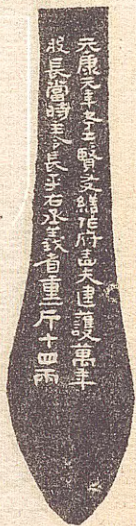 元康元年考工賢友繕作府嗇夫建護萬年
般長當時主令長平右丞義省重二斤十四兩